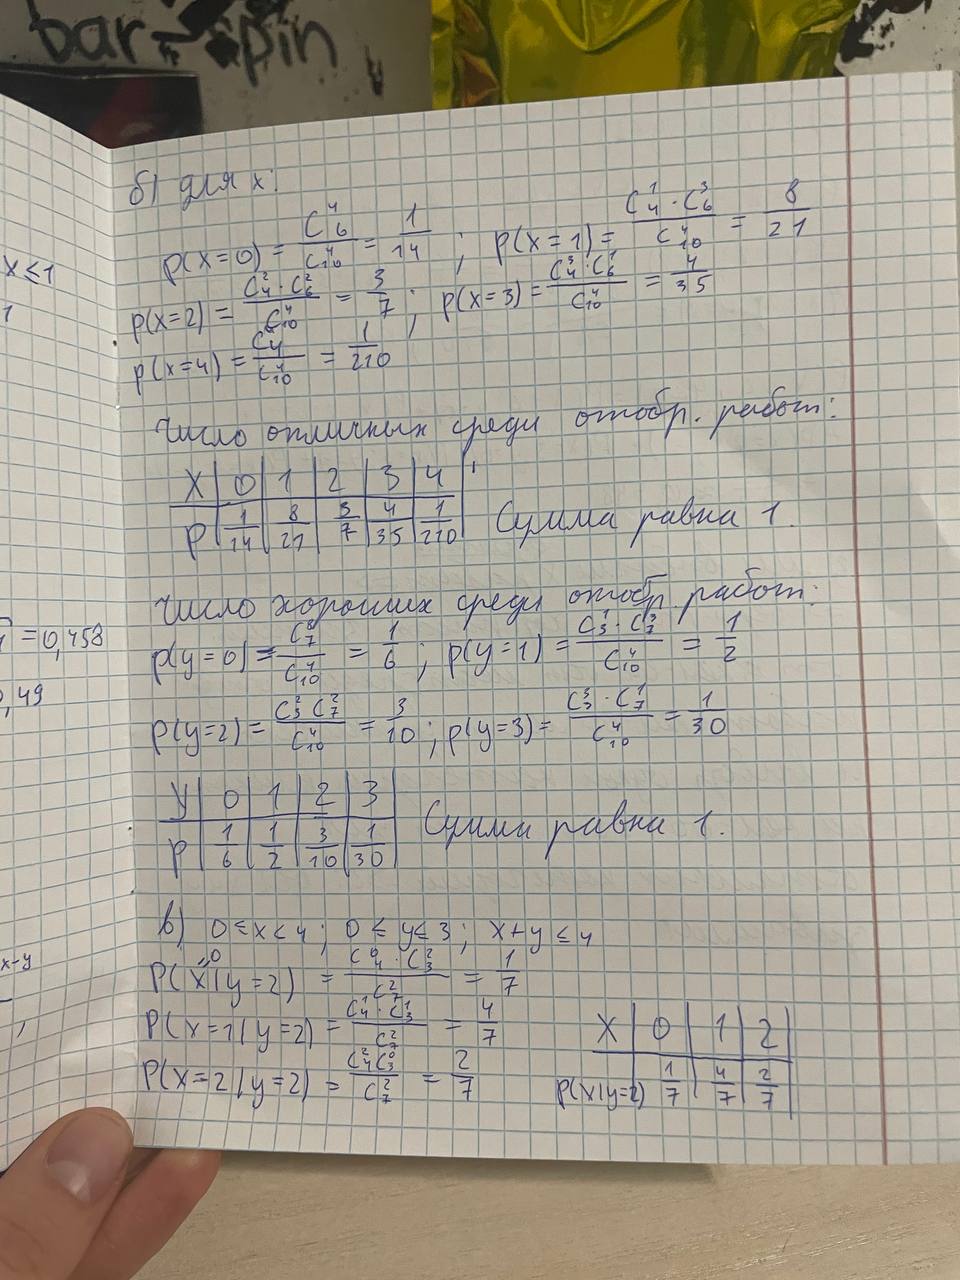 bar spin
x ≤ 1
1
= 0,458
0,49
x-y
б) для x:
p(x=0) = C_6^4 / C_10^4 = 1/14 ; p(x=1) = C_4^1 · C_6^3 / C_10^4 = 8/21
p(x=2) = C_4^2 · C_6^2 / C_10^4 = 3/7 ; p(x=3) = C_4^3 · C_6^1 / C_10^4 = 4/35
p(x=4) = C_4^4 / C_10^4 = 1/210
Число отличных среди отобр. работ:
X | 0 | 1 | 2 | 3 | 4
p | 1/14 | 8/21 | 3/7 | 4/35 | 1/210
Сумма равна 1.
Число хороших среди отобр. работ:
p(y=0) = C_7^4 / C_10^4 = 1/6 ; p(y=1) = C_3^1 · C_7^3 / C_10^4 = 1/2
p(y=2) = C_3^2 C_7^2 / C_10^4 = 3/10 ; p(y=3) = C_3^3 · C_7^1 / C_10^4 = 1/30
y | 0 | 1 | 2 | 3
p | 1/6 | 1/2 | 3/10 | 1/30
Сумма равна 1.
в) 0 ≤ x < 4 ; 0 ≤ y ≤ 3 ; x + y ≤ 4
P(x=0 | y=2) = C_4^0 · C_3^2 / C_7^2 = 1/7
P(x=1 | y=2) = C_4^1 · C_3^1 / C_7^2 = 4/7
P(x=2 | y=2) = C_4^2 C_3^0 / C_7^2 = 2/7
X | 0 | 1 | 2
p(x|y=2) | 1/7 | 4/7 | 2/7